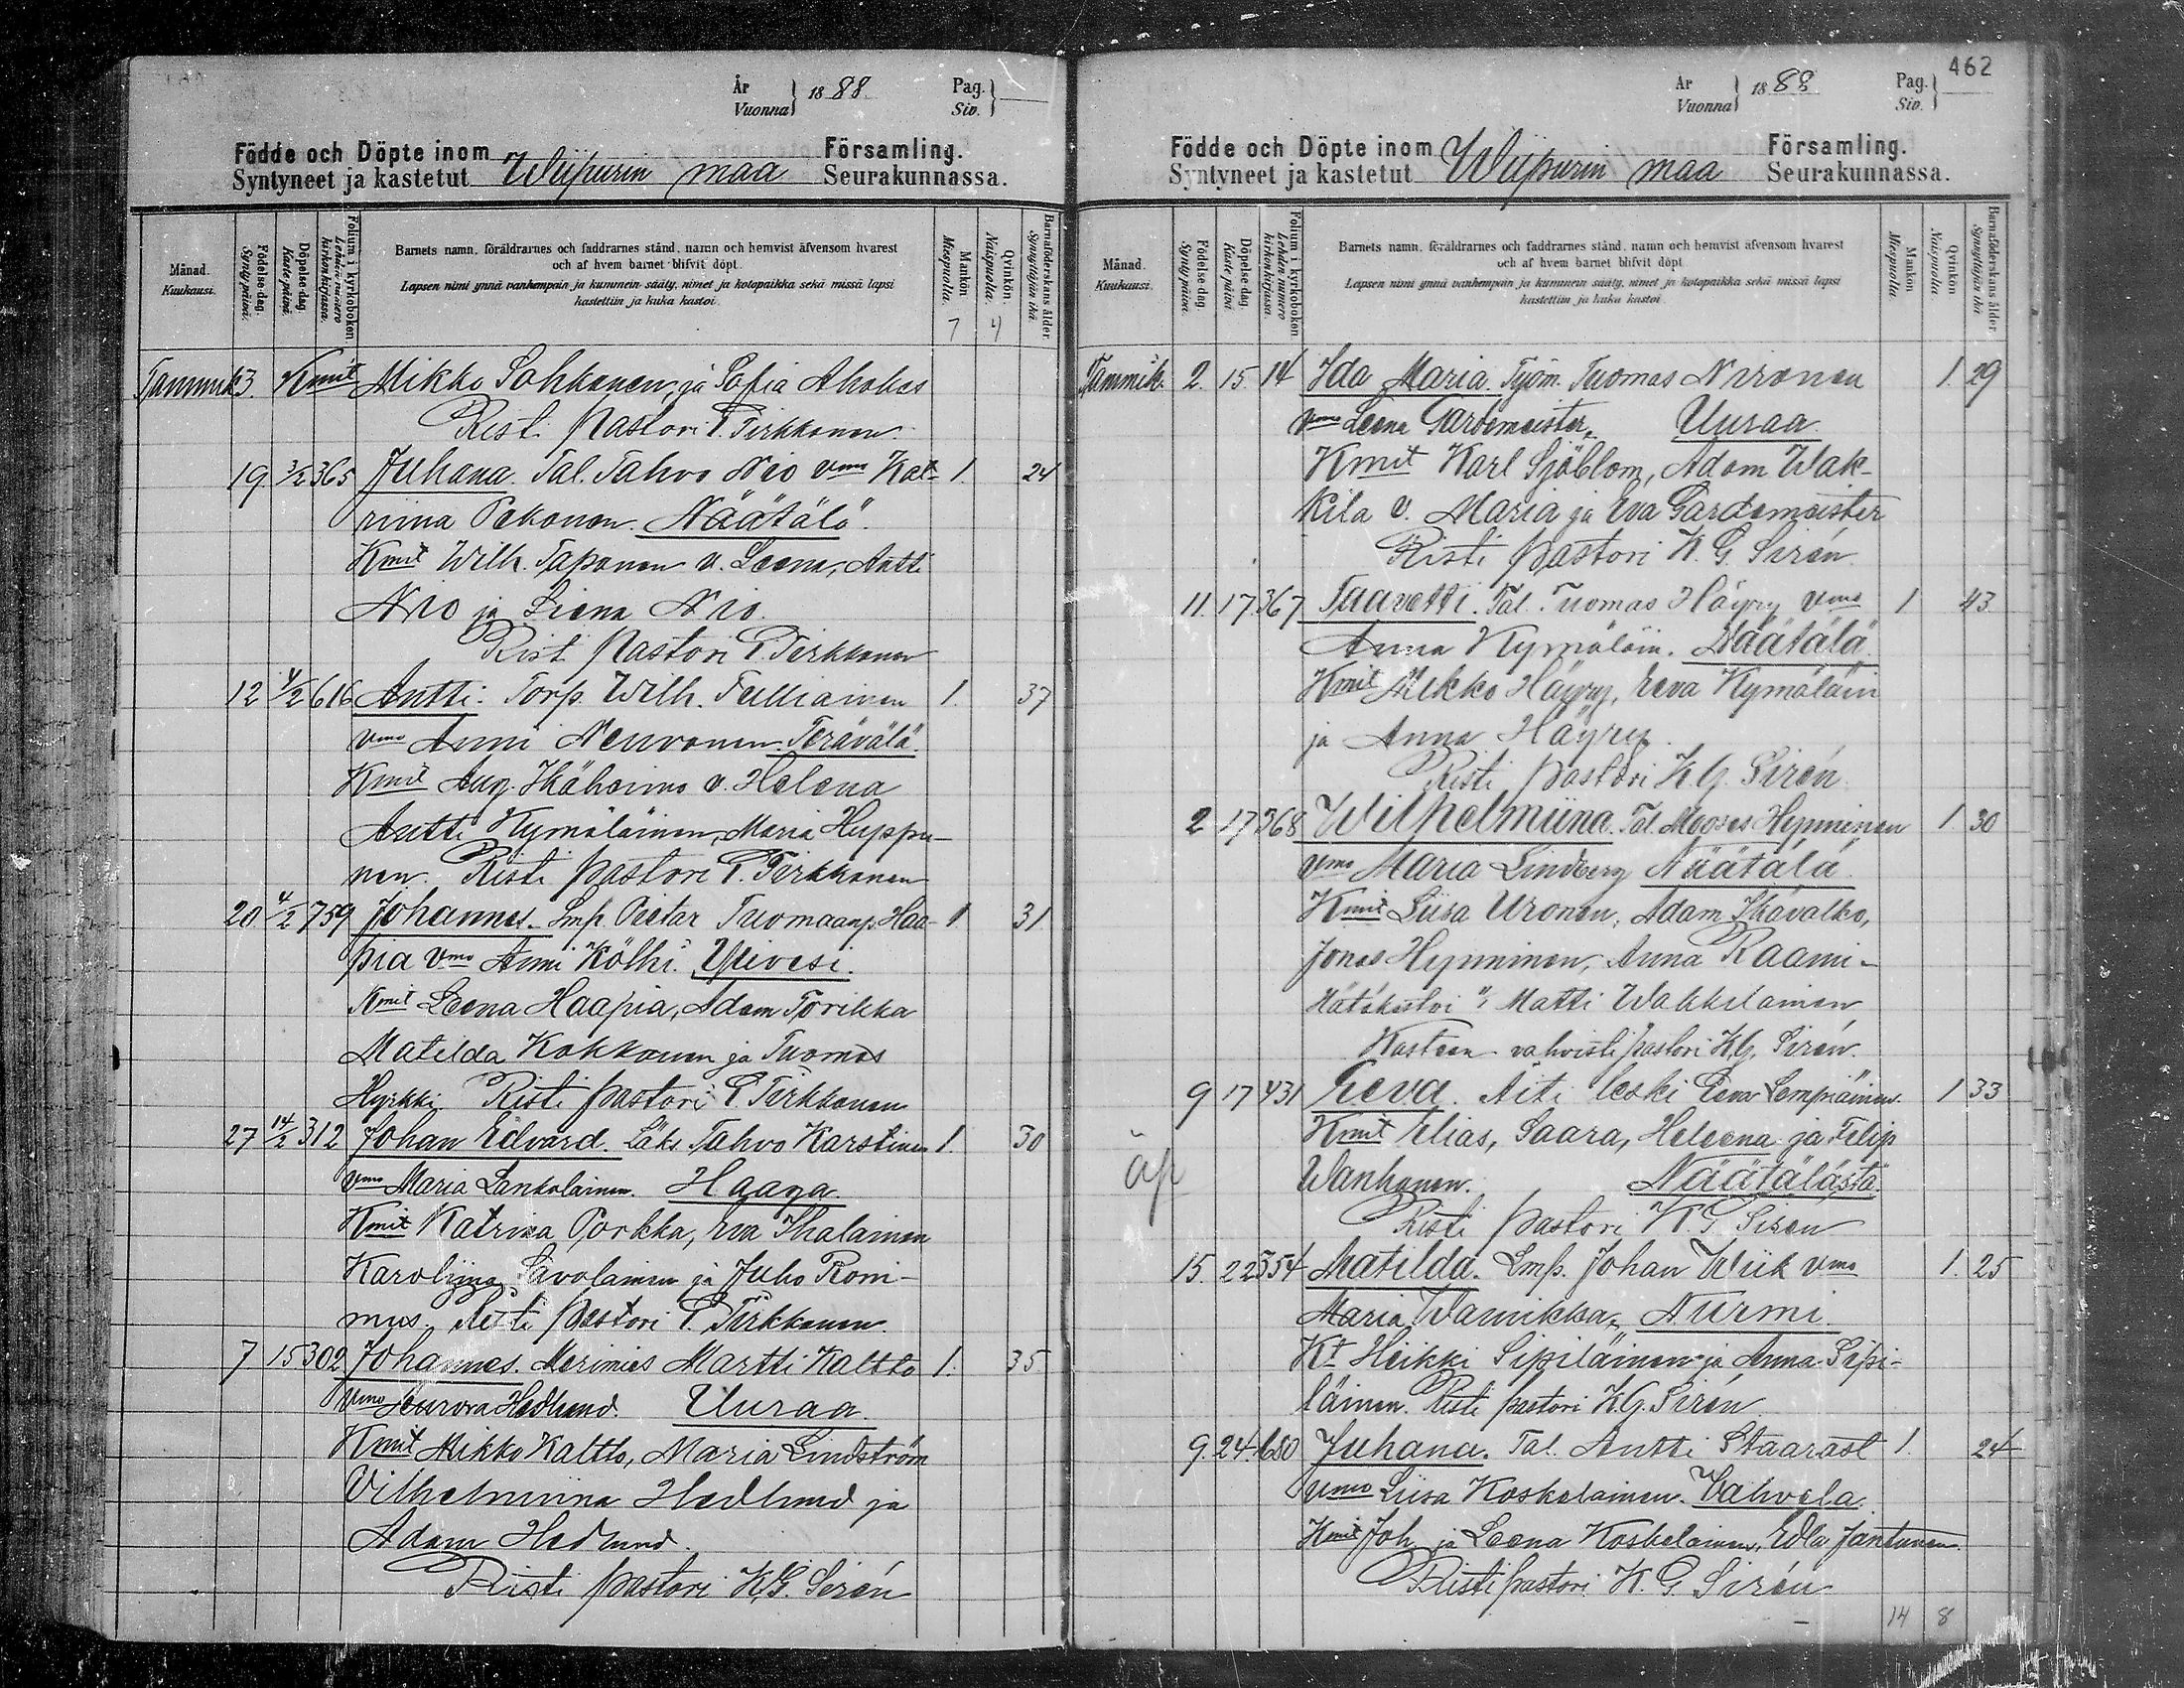 År Vuonna } 1888 Pag. Siv. }
Födde och Döpte inom Wiipurin maa Församling.
Syntyneet ja kastetut Seurakunnassa.
Månad. Kuukausi.
Födelse-dag. Synty päivä.
Döpelse-dag. Kaste päivä.
Folium i kyrkoboken Lehden numero kirkonkirjassa.
Barnets namn, föräldrarnes och faddrarnes stånd, namn och hemvist äfvensom hvarest
och af hvem barnet blifvit döpt.
Lapsen nimi ynnä vanhempain ja kummein sääty, nimet ja kotopaikka sekä missä lapsi
kastettiin ja kuka kastoi.
Mankön Miespuolia.
Qvinkön. Naispuolia.
Barnaföderskans ålder. Synnyttäjän ikä
7 4
Tammik 3. Kmit Mikko Sohkanen, ja Sofia Ahokas
Risti Pastori P. Tirkkonen.
19. 3/2 365 Juhana. Tal. Tahvo Nio vmo Kat- 1. 24
riina Pekonen. Näätälä.
Kmit Wilh. Taponen v. Leena, Antti
Nio ja Liena Nio.
Rist. Pastori P. Tirkkonen
12 4/2 616 Antti. Torp. Wilh. Tulliainen 1. 37
vmo Anni Neuvonen. Terävälä.
Kmit Aug. Ikäheimo v. Helena
Antti Kymäläinen, Maria Huppu-
nen. Risti pastori P. Tirkkonen
20. 4/2 759 Johannes. Lmp. Pietar Tuomaanp. Haa- 1 31
pia vmo Anni Kölhi. Ylivesi.
Kmit Leena Haapia, Adam Torikka
Matilda Kokkonen ja Tuomas
Hyrkki Risti pastori P. Tirkkonen
27 14/2 312 Johan Edvard. Läks. Tahvo Karstinen 1. 30
vmo Maria Lankolainen. Haapa.
Kmit Katriina Porkka, Eva Ihalainen
Karoliina Savolainen ja Juho Romi-
mus. Risti pastori P. Tirkkonen.
7 15 302 Johannes. Merimies Martti Kaltto 1. 35
vmo Aurora Hedlund. Uuraa.
Kmit Mikko Kaltto, Maria Lindström
Vilhelmiina Hedlund ja
Adam Hedlund.
Risti pastori K.G. Sirén
462
År Vuonna } 1888 Pag. Siv. }
Födde och Döpte inom Wiipurin maa Församling.
Syntyneet ja kastetut Seurakunnassa.
Månad. Kuukausi.
Födelse-dag. Synty päivä.
Döpelse-dag. Kaste päivä.
Folium i kyrkoboken Lehden numero kirkonkirjassa.
Barnets namn, föräldrarnes och faddrarnes stånd, namn och hemvist äfvensom hvarest
och af hvem barnet blifvit döpt
Lapsen nimi ynnä vanhempain ja kummein sääty, nimet ja kotopaikka sekä missä lapsi
kastettiin ja kuka kastoi.
Mankön Miespuolia
Qvinkön Naispuolia
Barnaföderskans ålder. Synnyttäjän ikä
Tammik. 2. 15. 14 Ida Maria. Työm. Tuomas Nironen 1. 29
vmo Leena Gardemeister. Uuraa.
Kmit Karl Sjöblom, Adam Wak-
kila v. Maria ja Eva Gardemeister
Risti pastori K. G. Sirén
11. 17. 367 Taavetti. Tal. Tuomas Häyry vmo 1 43
Anna Kymäläin. Näätälä.
Kmit Mikko Häyry, Eeva Kymäläin
ja Anna Häyry.
Risti pastori K.G. Sirén.
2 17 368 Wilhelmiina. Tal. Mooses Hynninen 1. 30
vmo Maria Lindberg Näätälä.
Kmit Liisa Uronen, Adam Ikävalko,
Jonas Hynninen, Anna Raami-
Hätäkastoi " Matti Wakkilainen
Kasteen vahvisti pastori K.G. Sirén.
9 17 431 Eeva. Äiti leski Eeva Lempiäinen. 1 33
Kmit Elias, Saara, Heleena ja Filip
äp Wanhanen. Näätälästä.
Risti pastori K. G Siren
15. 22 554 Matilda. Lmp. Johan Wiik vmo 1. 25
Maria Wannikka. Nurmi.
Kt Heikki Sipiläinen ja Anna Sipi-
läinen. Risti pastori K.G. Sirén
9. 24. 680 Juhana. Tal. Antti Staarast 1. 24
vmo Liisa Koskelainen. Vahvela.
Kmit Joh. ja Leena Koskelainen, Edla Jantunen.
Risti pastori K. G. Sirén
14 8